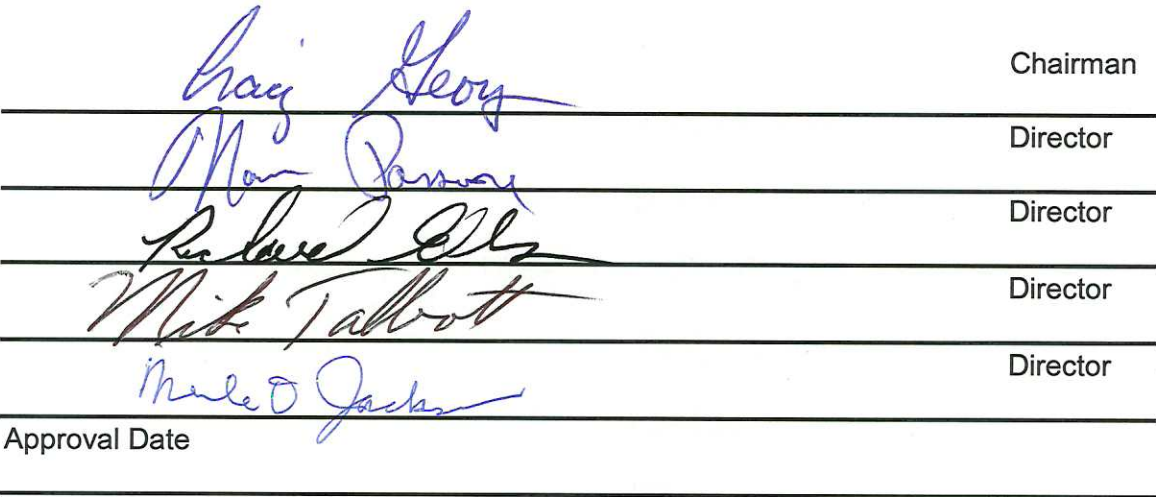 Craig Geory Chairman
Director
Richard Ellis Director
Mike Talbott Director
Merle D Jackson Director
Approval Date